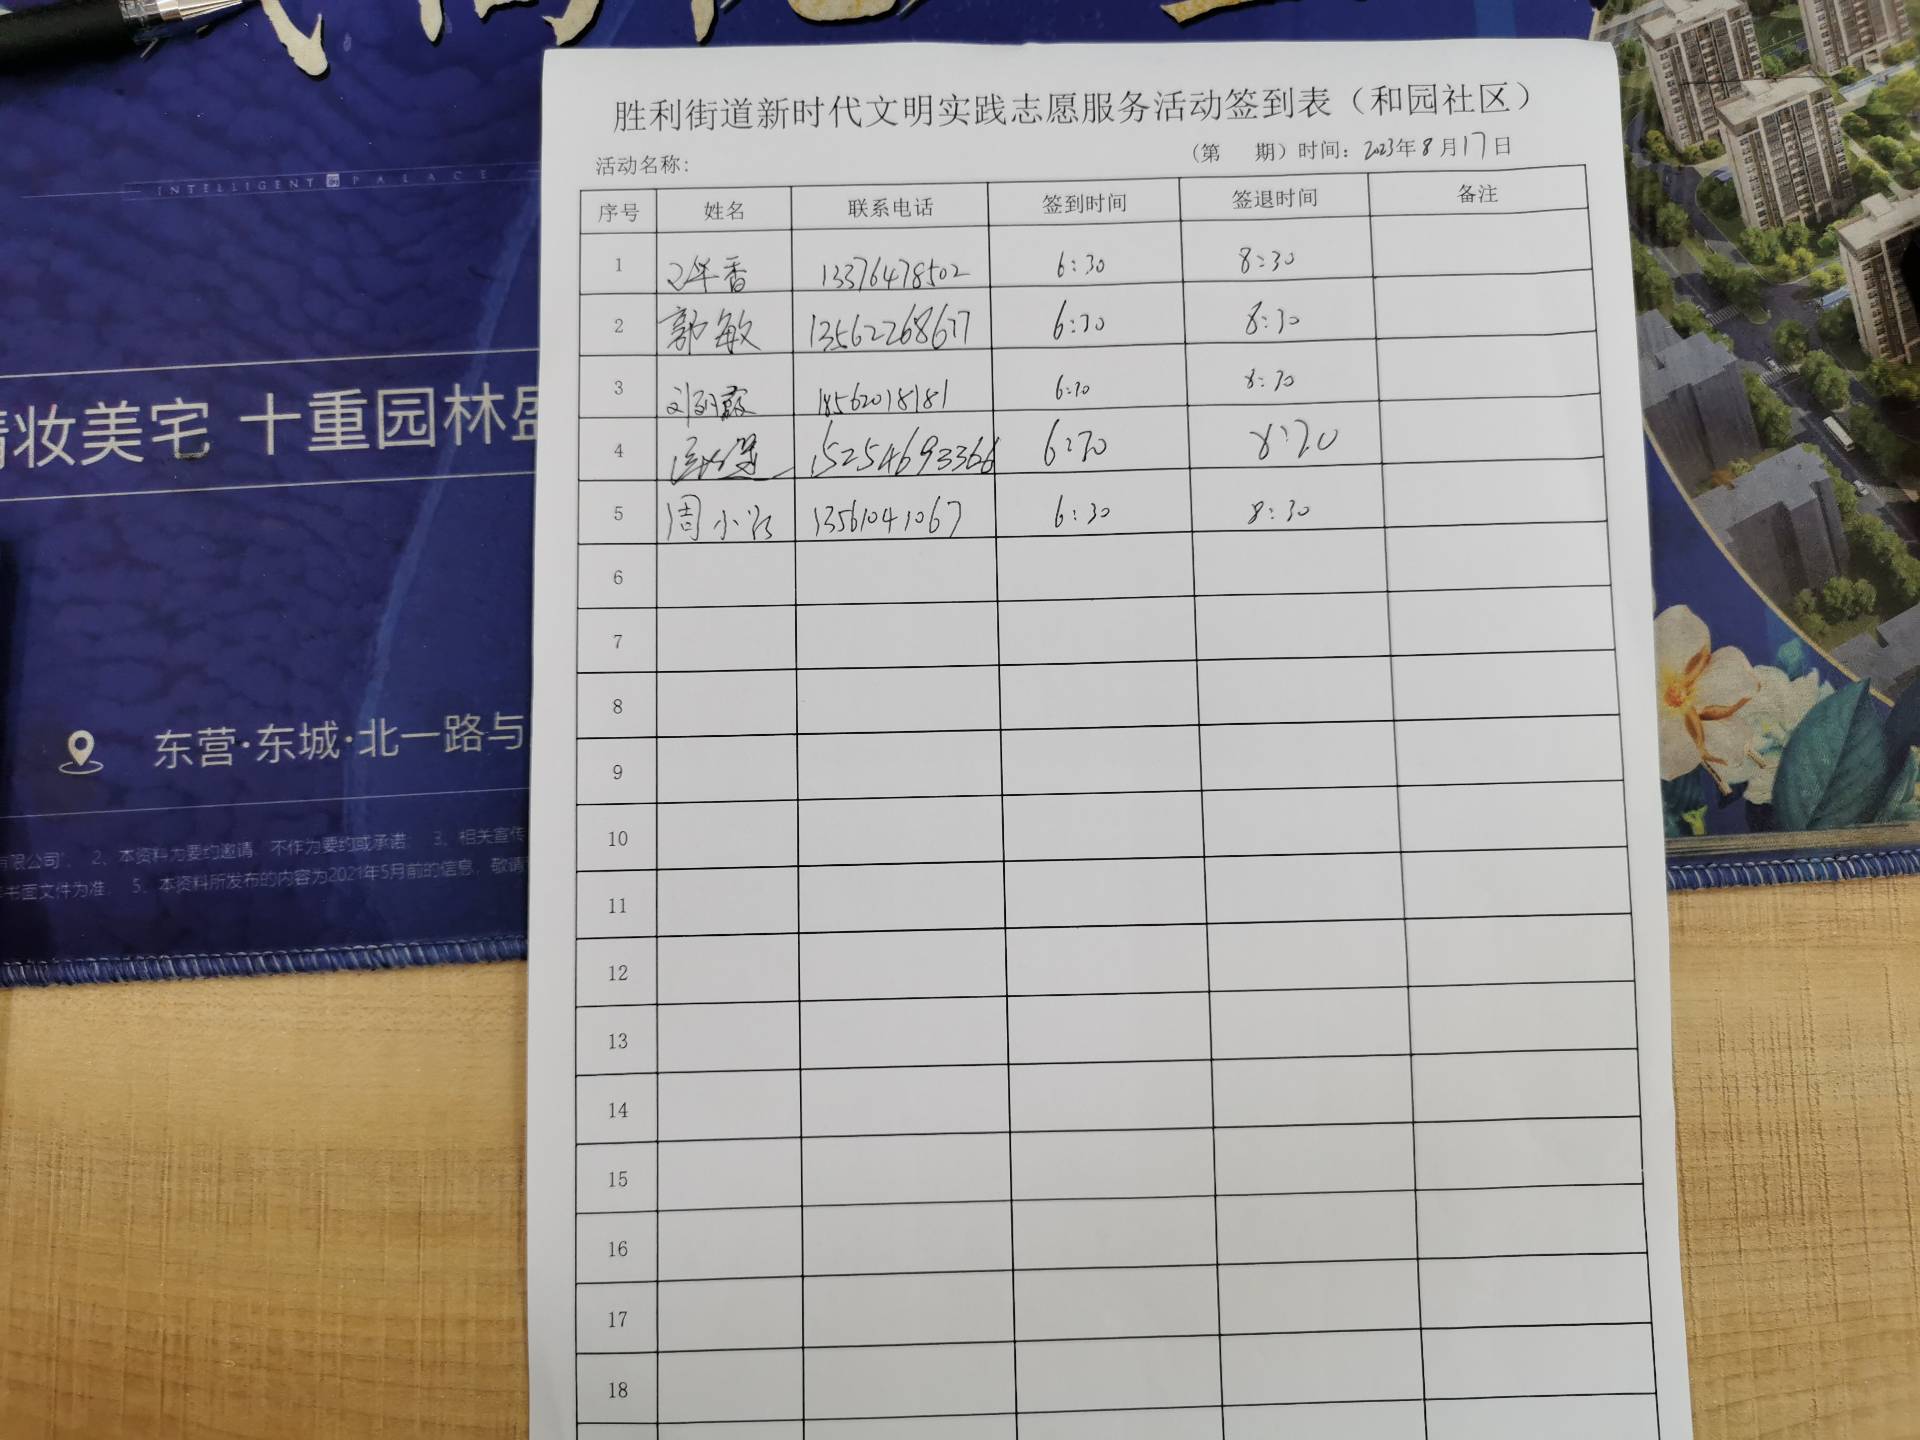 胜利街道新时代文明实践志愿服务活动签到表（和园社区）
活动名称: （第 期）时间：2023年8月17日
序号 姓名 联系电话 签到时间 签退时间 备注
1 香 13376478502 6:30 8:30
2 郭敏 13562268677 6:30 8:30
3 18562018181 6:30 8:30
4 15254693366 6:30 8:30
5 周小 13561041067 6:30 8:30
6
7
8
9
10
11
12
13
14
15
16
17
18
INTELLIGENT PALACE
精妆美宅 十重园林盛
东营·东城·北一路与
有限公司”。 2、本资料为要约邀请，不作为要约或承诺； 3、相关宣传
书面文件为准； 5、本资料所发布的内容为2021年5月前的信息，敬请